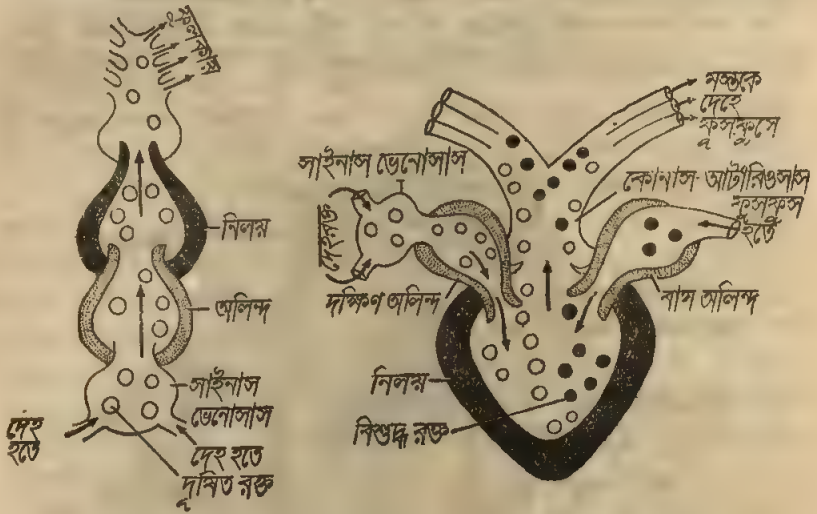 ফুলকায়
নিলয়
অলিন্দ
সাইনাস
ভেনোসাস
দেহ
হতে
দেহ হতে
দূষিত রক্ত
মস্তকে
দেহে
ফুসফুসে
সাইনাস ভেনোসাস
কোনাস-আর্টারিওসাস
ফুসফুস
হতে
দেহরক্ত
দক্ষিণ অলিন্দ
বাম অলিন্দ
নিলয়
বিশুদ্ধ রক্ত